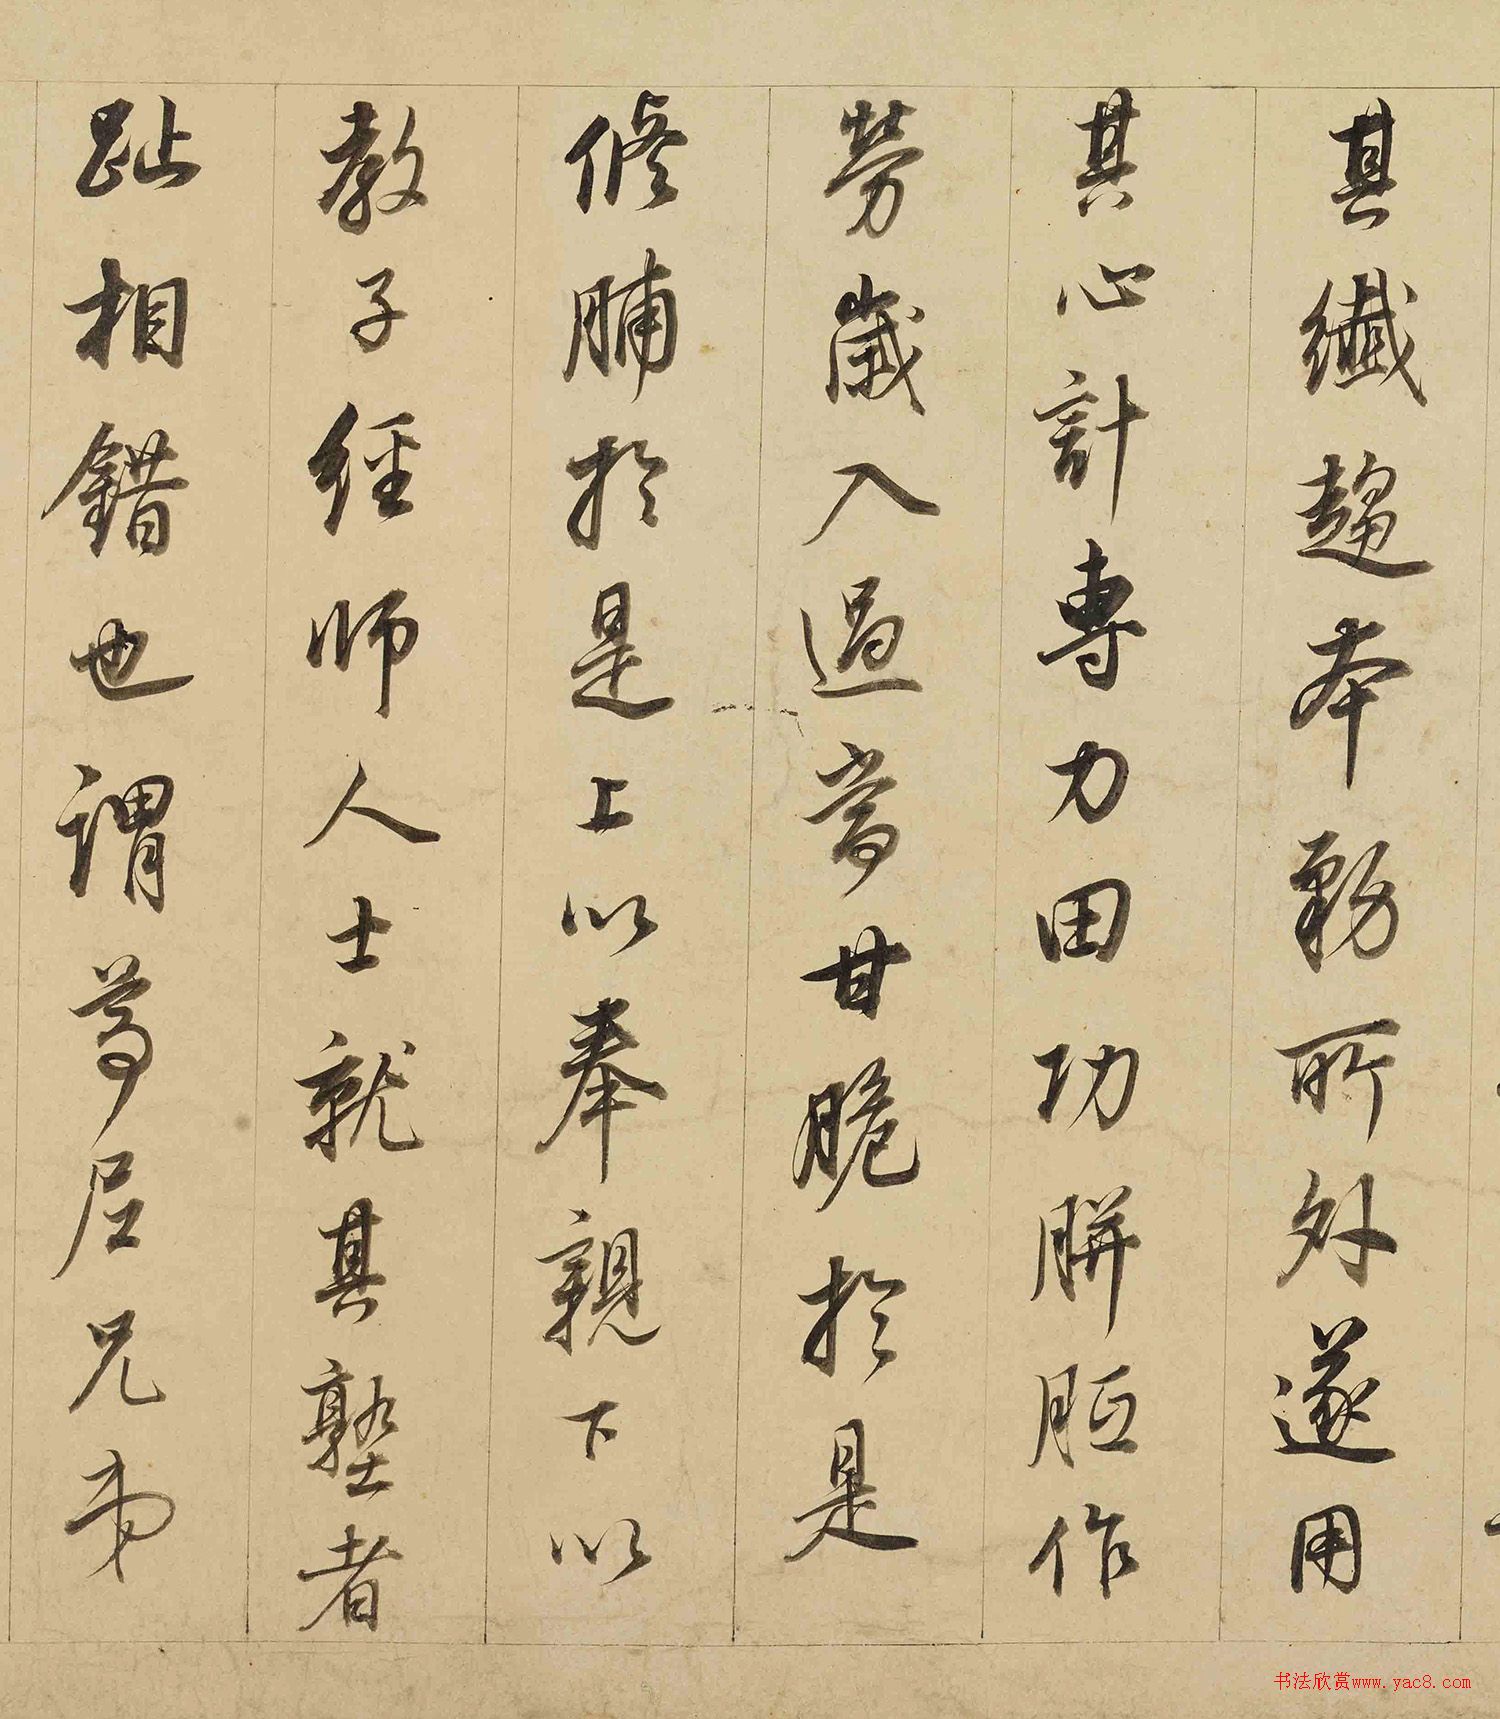 其纖趨本務所外遂用
其心計專力田功胼胝作
勞歲入過當甘脆於是
脩脯於是上以奉親下以
教子經師人士就其塾者
趾相錯也謂尊屋兄弟
书法欣赏www.yac8.com